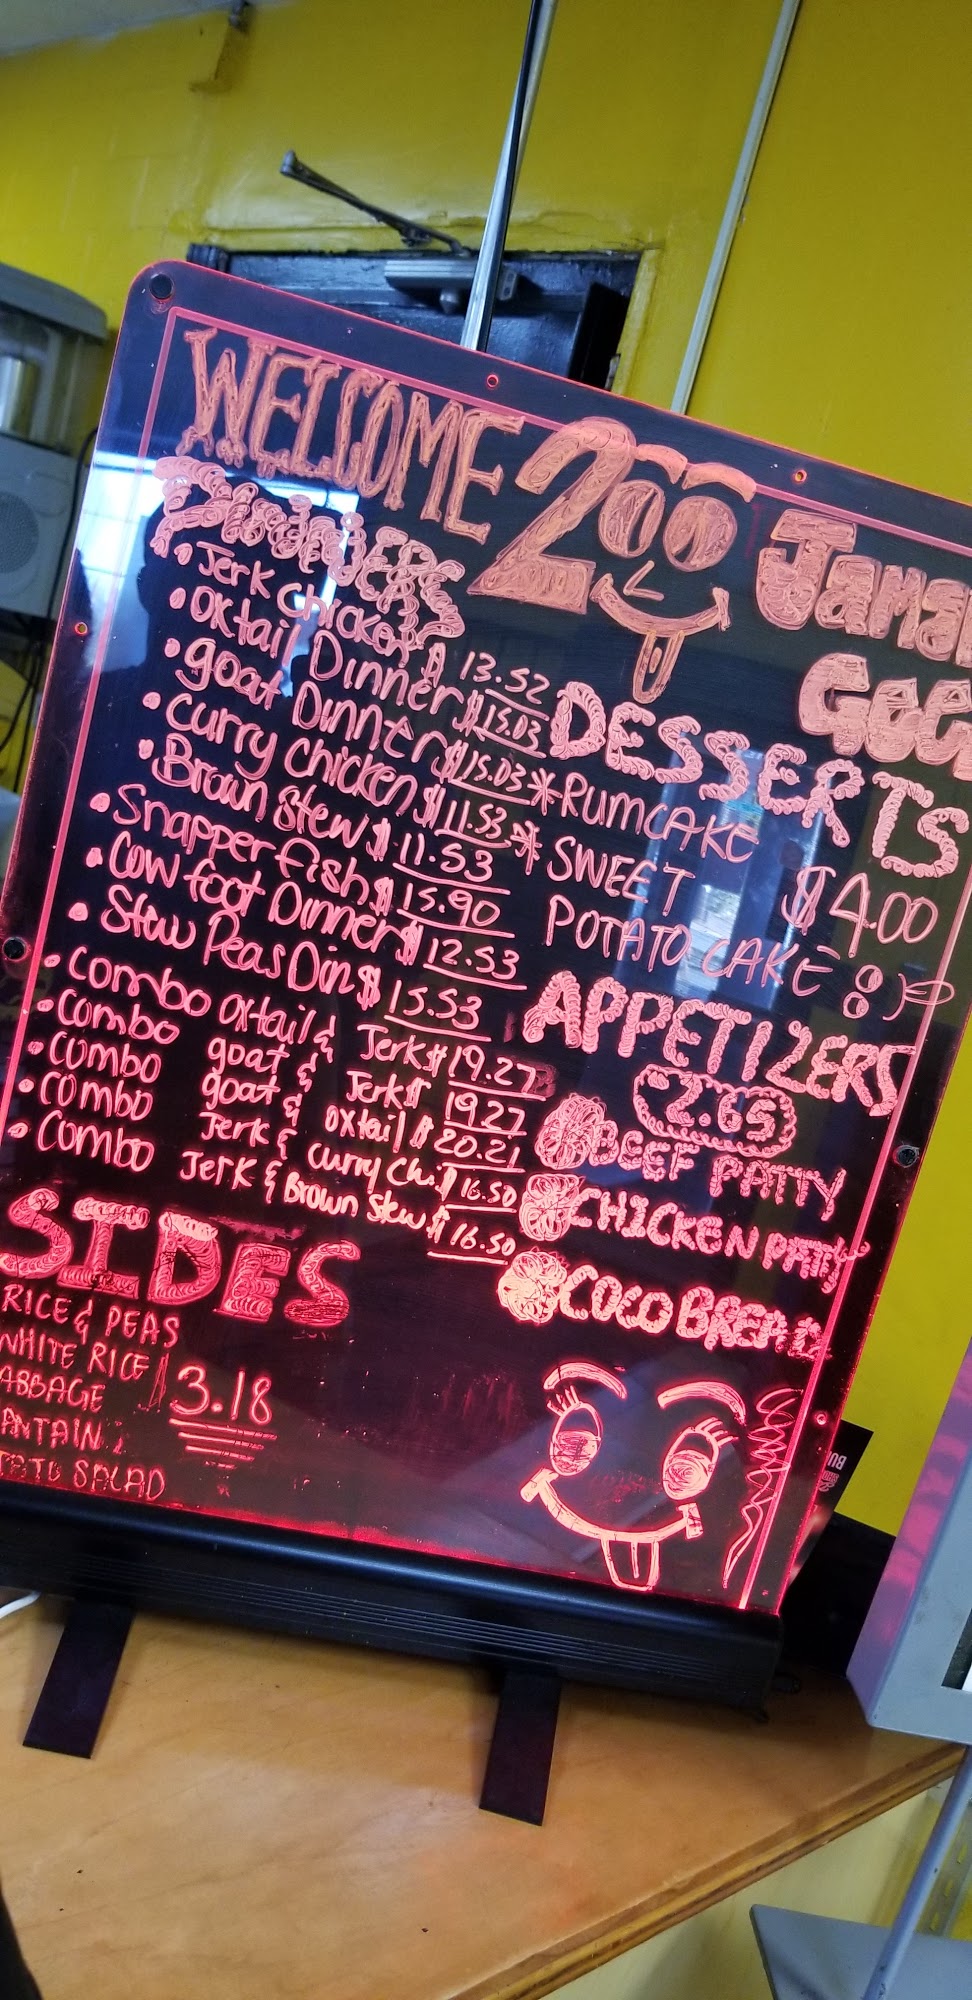 WELCOME 2OO
Dinners
• Jerk chicken $ 13.52
• Oxtail Dinner $15.03
• goat Dinner $15.03
• Curry chicken $11.53
• Brown Stew $ 11.53
• Snapper fish $ 15.90
• Cow foot Dinner $ 12.53
• Stew Peas Din $ 15.53
• combo oxtail & Jerk $19.27
• combo goat & Jerk $ 19.27
• combo goat & oxtail $ 20.21
• combo Jerk & curry Chi. $ 16.50
• combo Jerk & Brown stew $ 16.50
SIDES
RICE & PEAS
WHITE RICE $ 3.18
ABBAGE
ANTAIN
TATO SALAD
DESSERTS
* RUMCAKE
* SWEET $4.00
POTATO CAKE
APPETIZERS
2.65
BEEF PATTY
CHICKEN PATTY
COCO BREAD